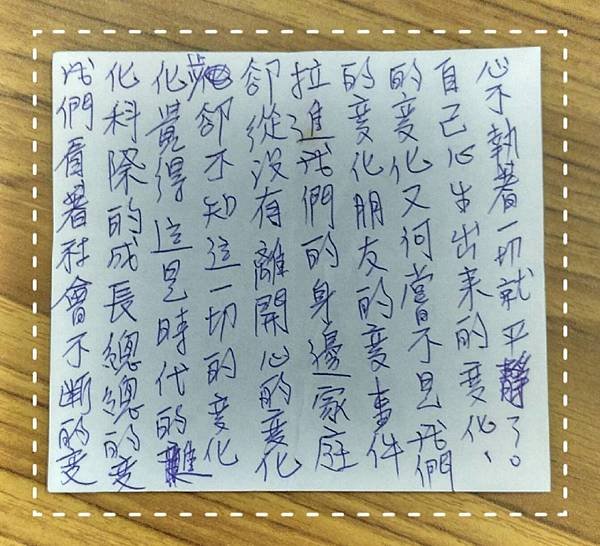 我們看著社會不斷的変
化科際的成長總總的変
化覺得這是時代的進
步卻不知這一切的変化
卻從沒有離開心的変化
拉進我們的身邊家庭
的変化朋友的変事件
的変化又何當不是我們
自己心生出来的変化、
心不執著一切就平靜了。